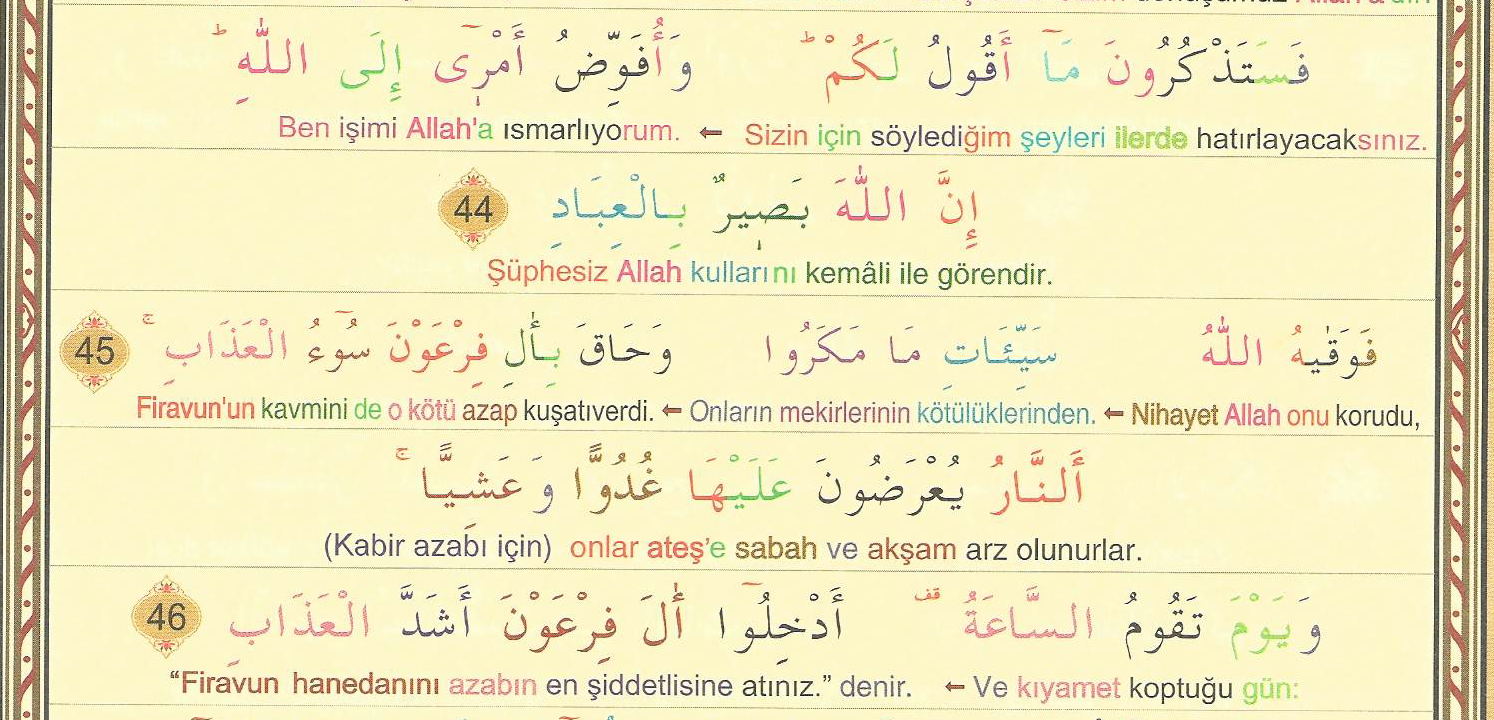 فَسَتَذْكُرُونَ مَٓا أَقُولُ لَكُمْ ۜ وَأُفَوِّضُ أَمْرِٓى إِلَى اللّٰهِ ۜ
Sizin için söylediğim şeyleri ilerde hatırlayacaksınız. ← Ben işimi Allah'a ısmarlıyorum.
إِنَّ اللّٰهَ بَصِيرٌ بِالْعِبَادِ 44
Şüphesiz Allah kullarını kemâli ile görendir.
فَوَقٰيهُ اللّٰهُ سَيِّئَاتِ مَا مَكَرُوا وَحَاقَ بِأٰلِ فِرْعَوْنَ سُٓوءُ الْعَذَابِ ۚ 45
Nihayet Allah onu korudu, ← Onların mekirlerinin kötülüklerinden. ← Firavun'un kavmini de o kötü azap kuşatıverdi.
أَلنَّارُ يُعْرَضُونَ عَلَيْهَا غُدُوًّا وَعَشِيًّا ۚ
(Kabir azabı için) onlar ateş'e sabah ve akşam arz olunurlar.
وَيَوْمَ تَقُومُ السَّاعَةُ قف أَدْخِلُٓوا أٰلَ فِرْعَوْنَ أَشَدَّ الْعَذَابِ 46
Ve kıyamet koptuğu gün: ← “Firavun hanedanını azabın en şiddetlisine atınız.” denir.